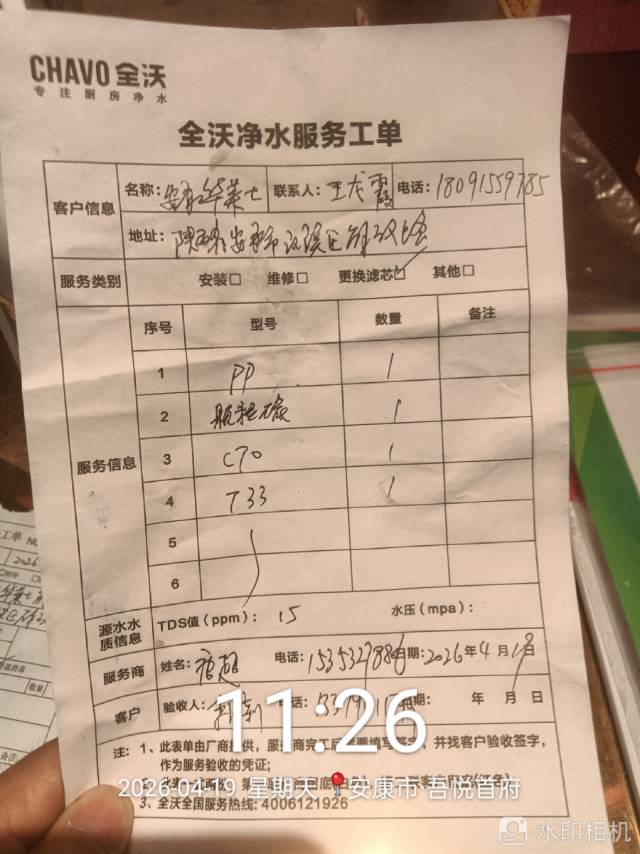 CHAVO 全沃
专注厨房净水
全沃净水服务工单
客户信息
名称: 安康华莱士 联系人: 王龙霞 电话: 18091559785
地址: 陕西省安康市汉滨区
服务类别 安装□ 维修□ 更换滤芯☑ 其他□
服务信息
序号 型号 数量 备注
1 PP 1
2 颗粒碳 1
3 C70 1
4 T33 1
5
6
源水水质信息 TDS值(ppm): 15 水压(mpa):
服务商 姓名: 电话: 日期: 2026年4月19日
客户 验收人: 电话: 日期: 年 月 日
11:26
注: 1、此表单由厂商提供,服务商完工后需要填写签字,并找客户验收签字,
作为服务验收的凭证;
2026-04-19 星期天 安康市·吾悦首府
3、全沃全国服务热线: 4006121926
水印相机